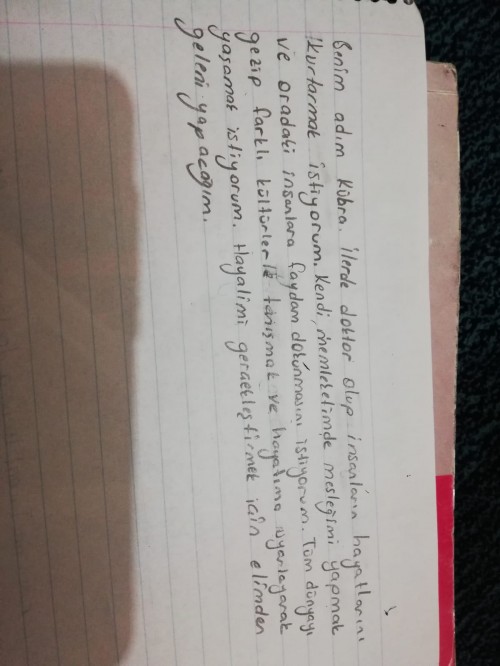 Benim adım Kübra. İlerde doktor olup insanların hayatlarını
kurtarmak istiyorum. Kendi memleketimde mesleğimi yapmak
ve oradaki insanlara faydam dokunmasını istiyorum. Tüm dünyayı
gezip farklı kültürlerle tanışmak ve hayatıma uyarlayarak
yaşamak istiyorum. Hayalimi gerçekleştirmek için elimden
geleni yapacağım.